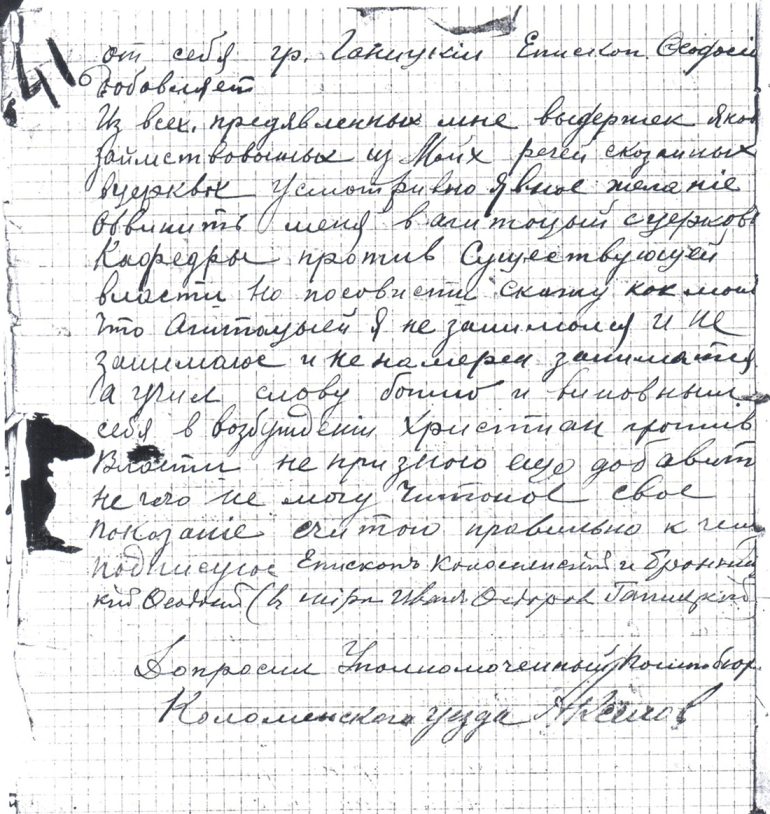 41
от себя гр. Ганицкій Епископ Ѳеодосій
добавляет
Из всех предявленных мне выдержек якобы
займствованных из Мойх речей сказанных
вцерквах Усмотривю явное желаніе
Обвинить меня в агитацый с церковн
Кафедры против Существующей
власти Но посовисти скажу как мон
Что Агитацыей я не занимался И НЕ
занимаюс и не намерен заниматся
а учил слову божию и виновным
себя в возбуждении Христиан против
Власти не признаю еще добавит
не чего не могу Читаное свое
показаніе считаю правильно к чем
подписуюс Епископъ Коломенский и Бронниц
кій Ѳеодосій (в мірѣ Иванъ Ѳедоров Ганицкій)
Допросил Уполномоченный Политбюро
Коломенского уезда